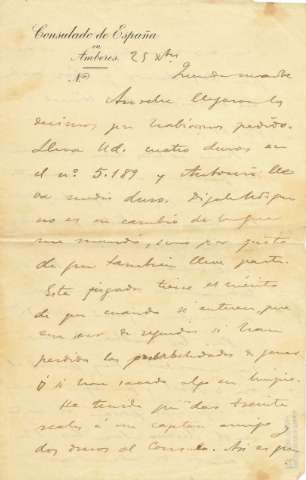 Consulado de España
en
Amberes. 25 Xbre
Nº
Querida madre
Anoche llegaron los
décimos que habíamos pedido.
Lleva Ud. cuatro duros en
el nº 5.189 y Antonio lle
va medio duro. Dígale Ud. que
no es en cambio de lo que
me mandó, sino por gusto
de que también lleve parte.
Esta jugada tiene el
de que cuando se enteren que
de si han
perdido las probabilidades de ganar
ó si han sacado algo en limpio.
He tenido que dar treinta
reales á un capitán amigo y
dos duros al Consul. Así es que